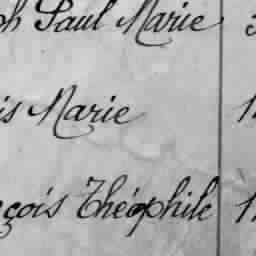 ph Paul Marie
is Marie
çois Théophile